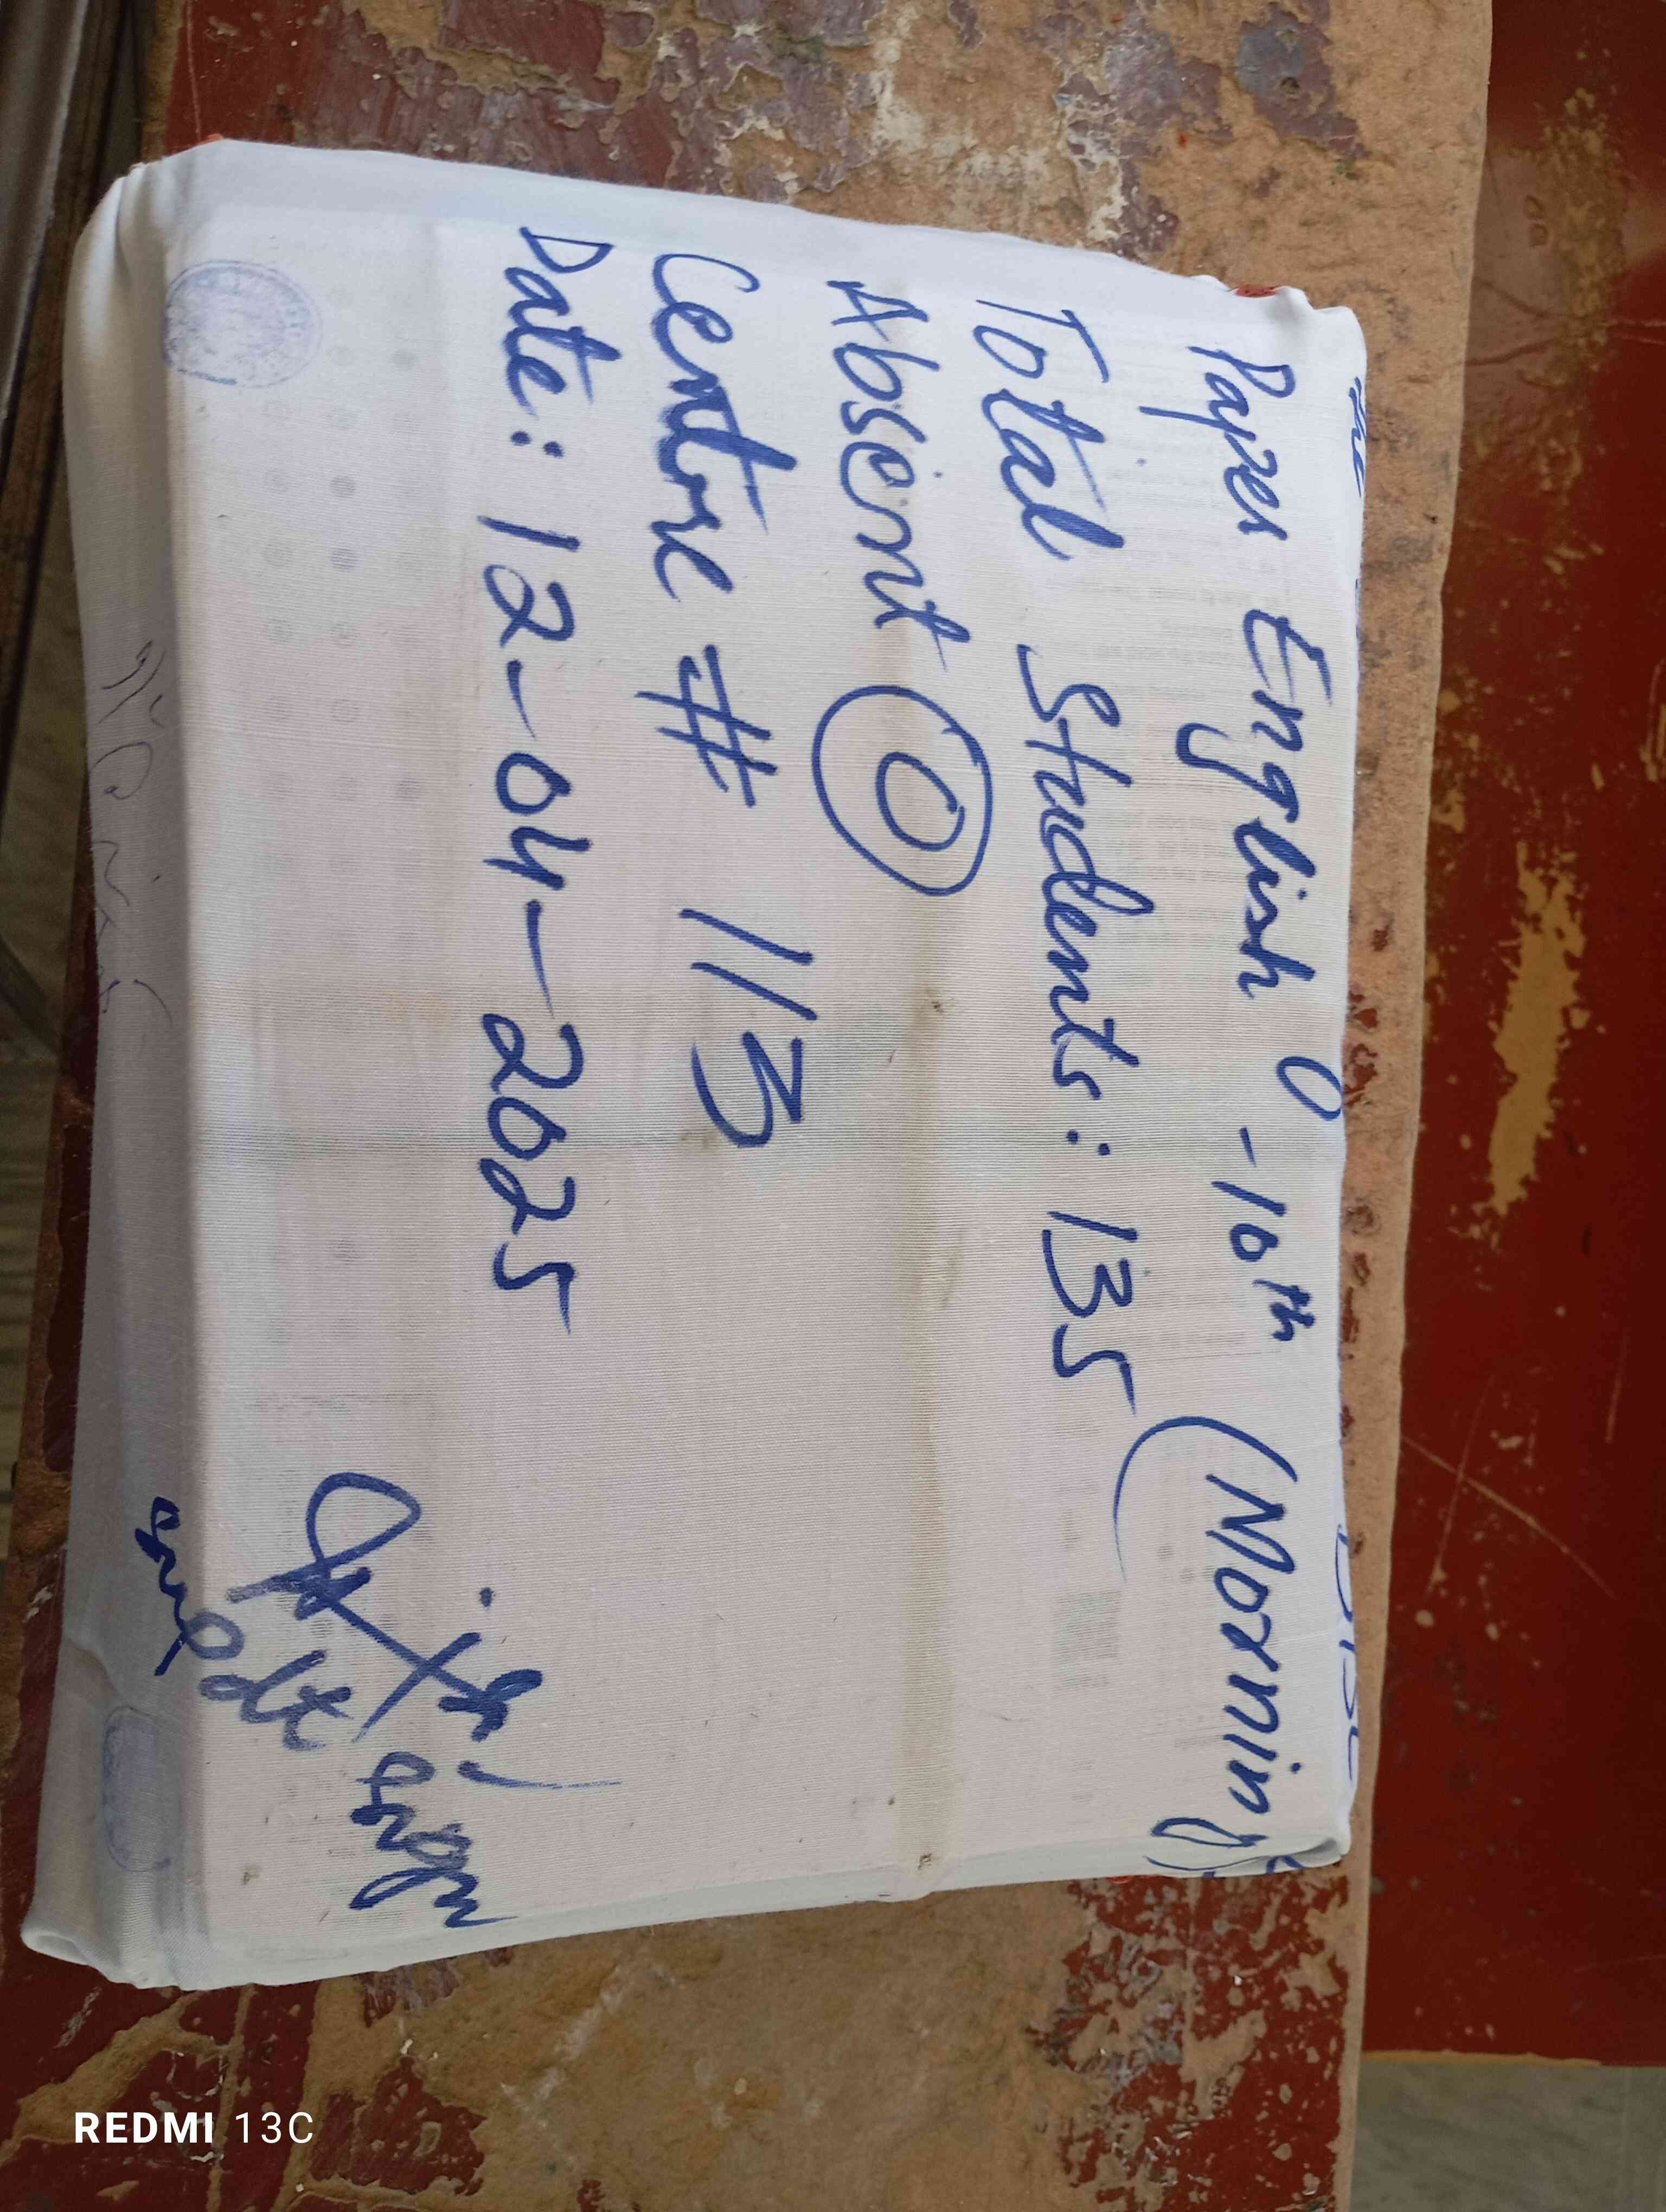 Paper English - 10th (Morning)
Total Students: 135
Absent 0
Centre # 113
Date: 12-04-2025
REDMI 13C